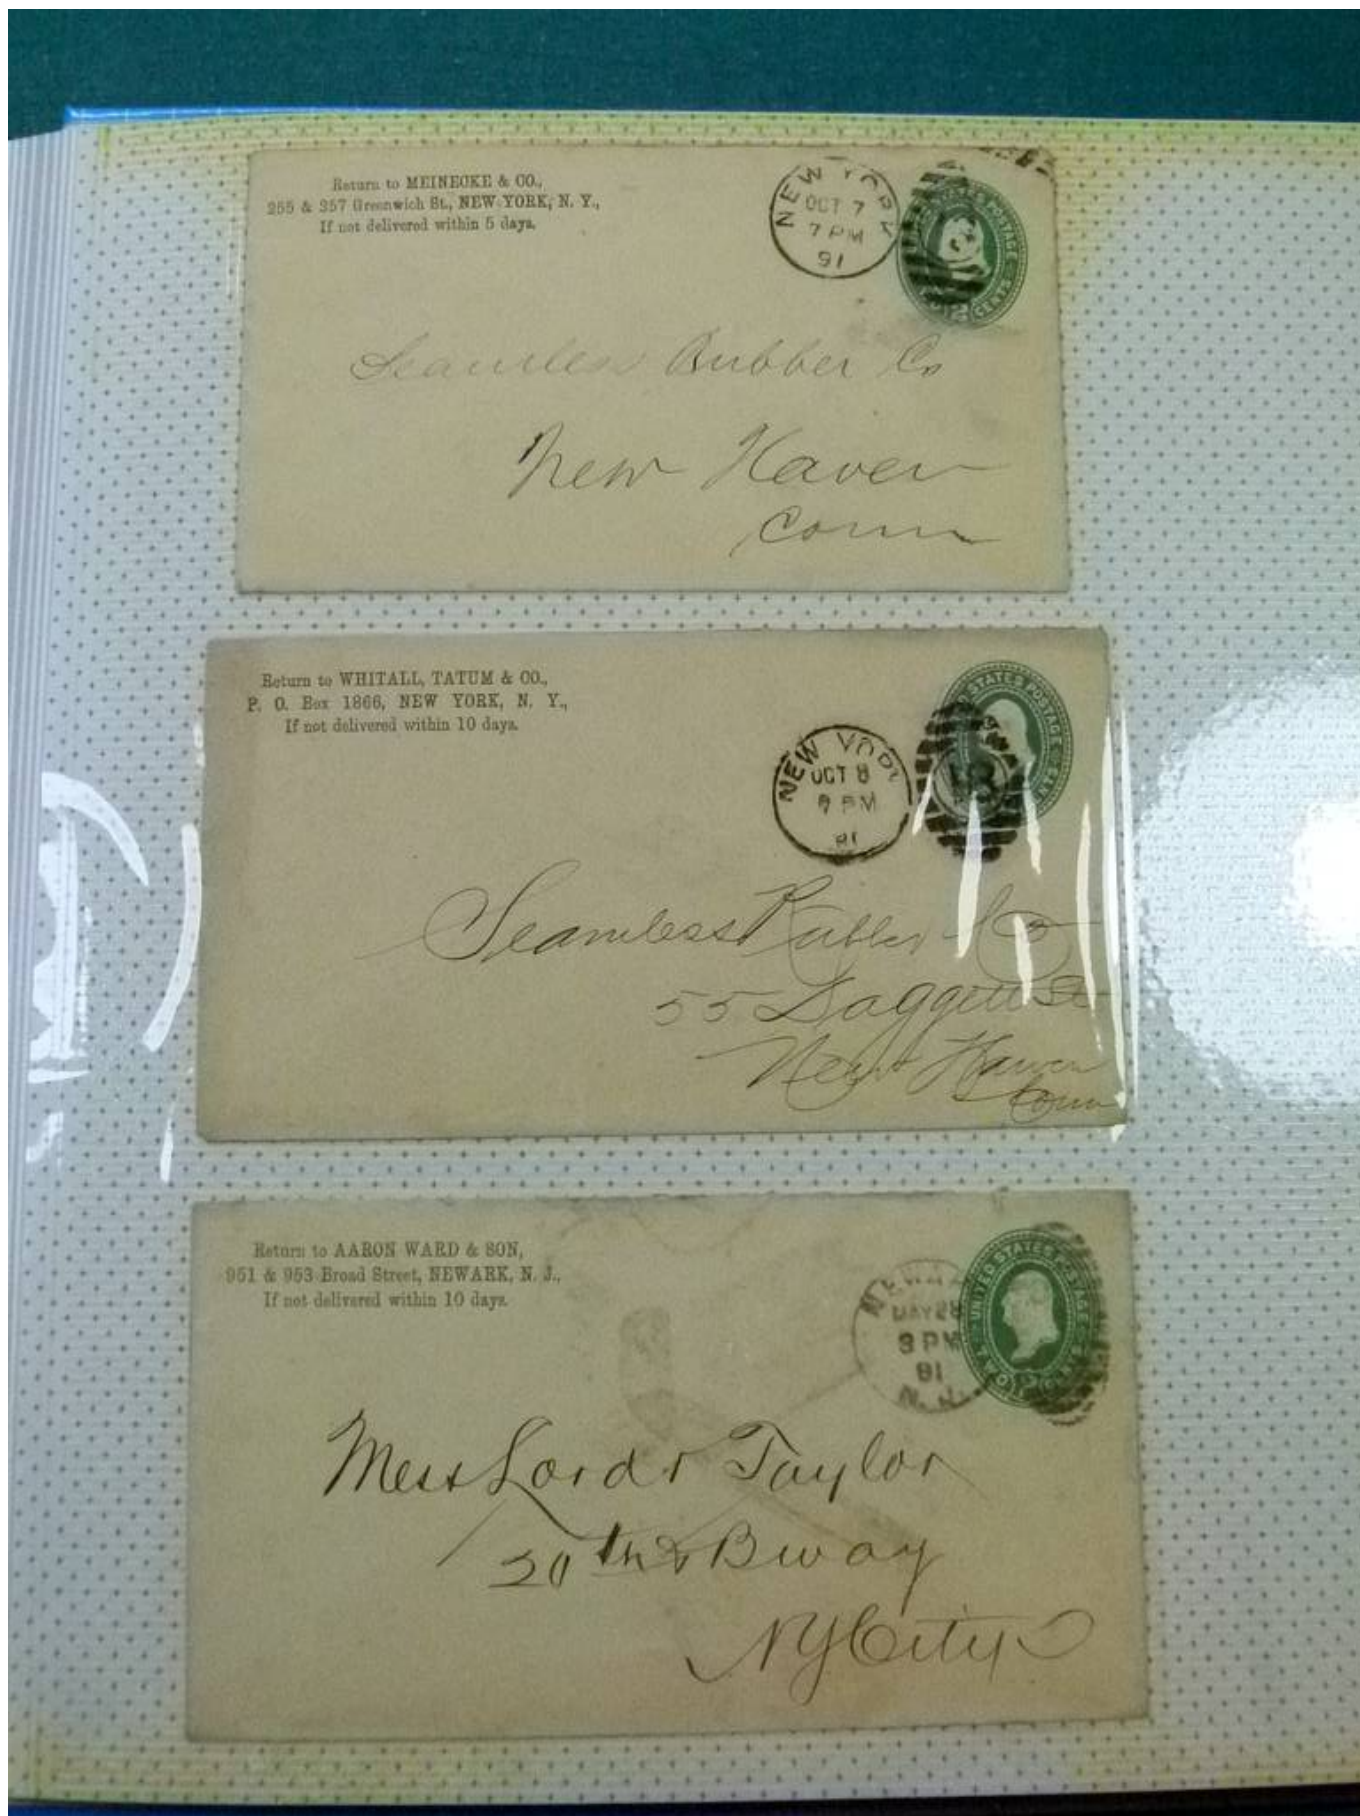 Return to MEINECKE & CO.,
255 & 257 Greenwich St., NEW YORK, N. Y.,
If not delivered within 5 days.
NEW YORK
OCT 7
7 PM
91
POSTAGE
2 CENTS
Seamless Rubber Co
New Haven
Conn
Return to WHITALL, TATUM & CO.,
P. O. Box 1866, NEW YORK, N. Y.,
If not delivered within 10 days.
NEW YORK
OCT 8
PM
91
UNITED STATES POSTAGE
Seamless Rubber Co
55 Daggett St
New Haven
Conn
Return to AARON WARD & SON,
951 & 953 Broad Street, NEWARK, N. J.,
If not delivered within 10 days.
NEWARK
MAY 28
3 PM
91
N. J.
UNITED STATES POSTAGE
Mess Lord & Taylor
20th & Bway
NY City